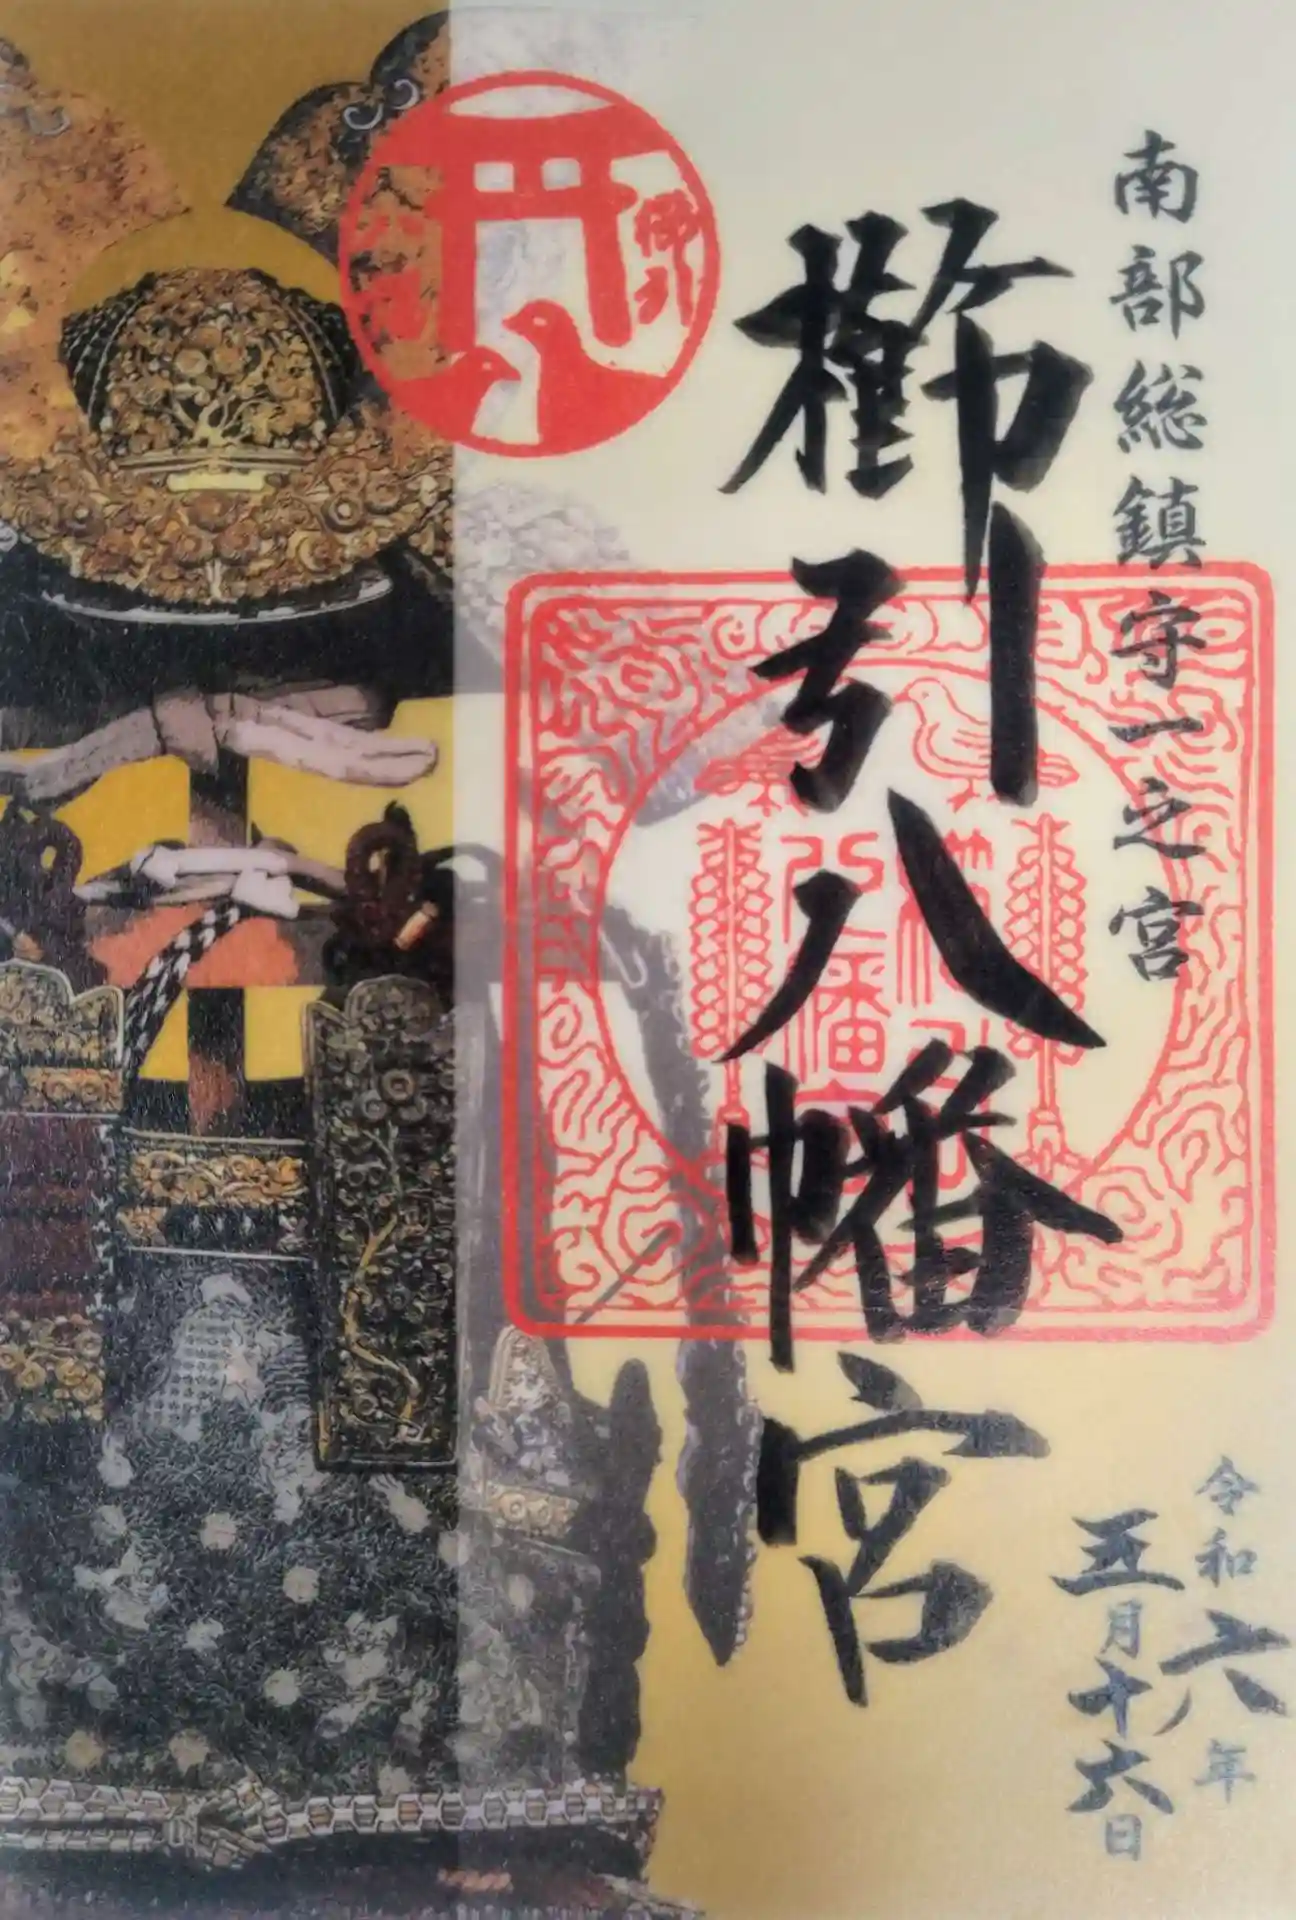 南部総鎮守一之宮
櫛引八幡宮
令和六年
五月十六日
櫛引
八幡
櫛引
八幡宮